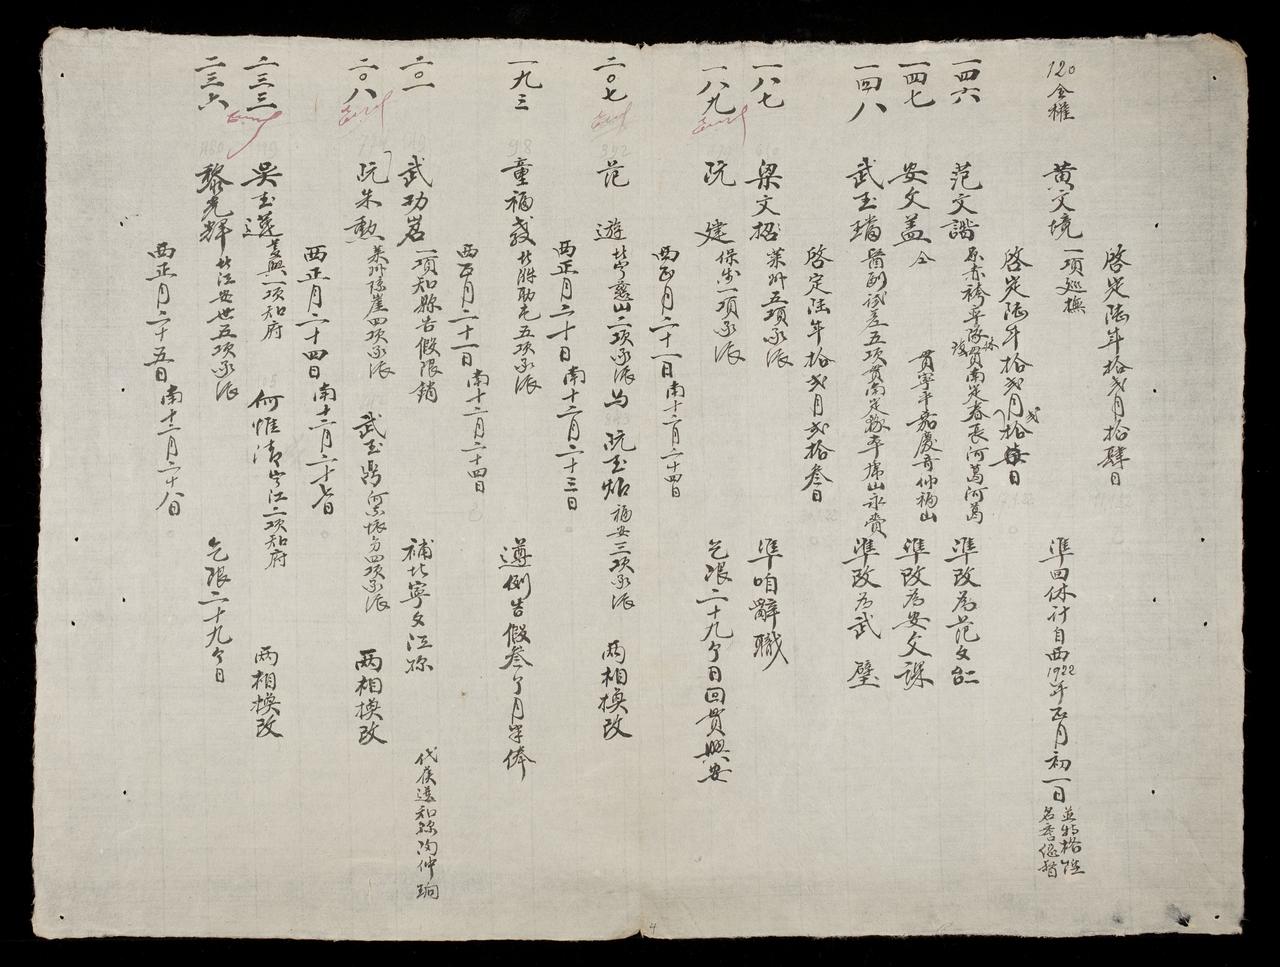 啓定陸年拾弍月拾肆日
120 全權 黃文境 一項巡撫 準回休計自西1922年正月初一日 並特格陞名香總督
啓定陸年拾弍月拾弍日
一四六 范文諧 原赤袴單隊貫南定春長河葛河葛 準改為范文
一四七 安文盖 仝 貫寧平嘉慶 仲福山 準改為安文課
一四八 武玉璠 試差五項貫南定 席山永貴 準改為武 璧
啓定陸年拾弍月弍拾叁日
一八七 梁文招 萊州五項承派 準咱辭職
一八九 阮 建 保 一項承派 乞限二十九个日回貫興安
西正月二十一日南十二月二十四日
二〇七 范 遊 北寧 山二項承派 与 阮玉炤 福安三項承派 两相換改
西正月二十日南十二月二十三日
一九三 童福 北 五項承派 遵例告假叁个月半俸
西正月二十一日南十二月二十四日
二〇一 武功 一項知縣告假限銷 補北寧文江縣 代 選知縣陶仲珦
二〇八 阮朱勲 四項承派 武玉 河 四項承派 两相換改
西正月二十四日南十二月二十七日
二三三 吳玉選 一項知府 何惟清 寧江二項知府 两相換改
二三六 黎光輝 北江安世五項承派 乞限二十九个日
西正月二十五日南十二月二十八日
4